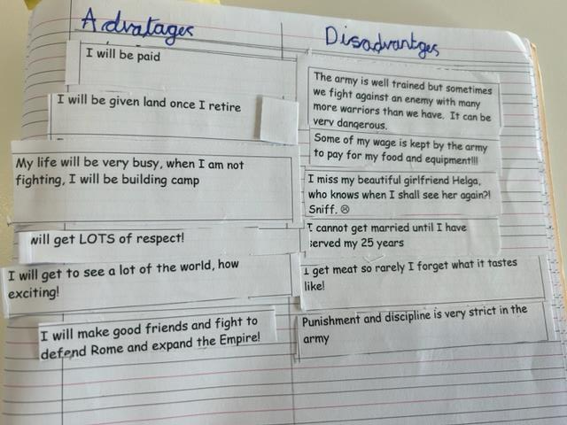 Advatages
I will be paid
I will be given land once I retire
My life will be very busy, when I am not
fighting, I will be building camp
will get LOTS of respect!
I will get to see a lot of the world, how
exciting!
I will make good friends and fight to
defend Rome and expand the Empire!
Disadvantges
The army is well trained but sometimes
we fight against an enemy with many
more warriors than we have. It can be
very dangerous.
Some of my wage is kept by the army
to pay for my food and equipment!!!
I miss my beautiful girlfriend Helga,
who knows when I shall see her again?!
Sniff. ☹
I cannot get married until I have
served my 25 years
I get meat so rarely I forget what it tastes
like!
Punishment and discipline is very strict in the
army